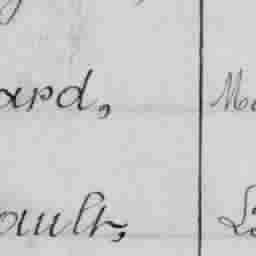 ard, Ma
ault, L